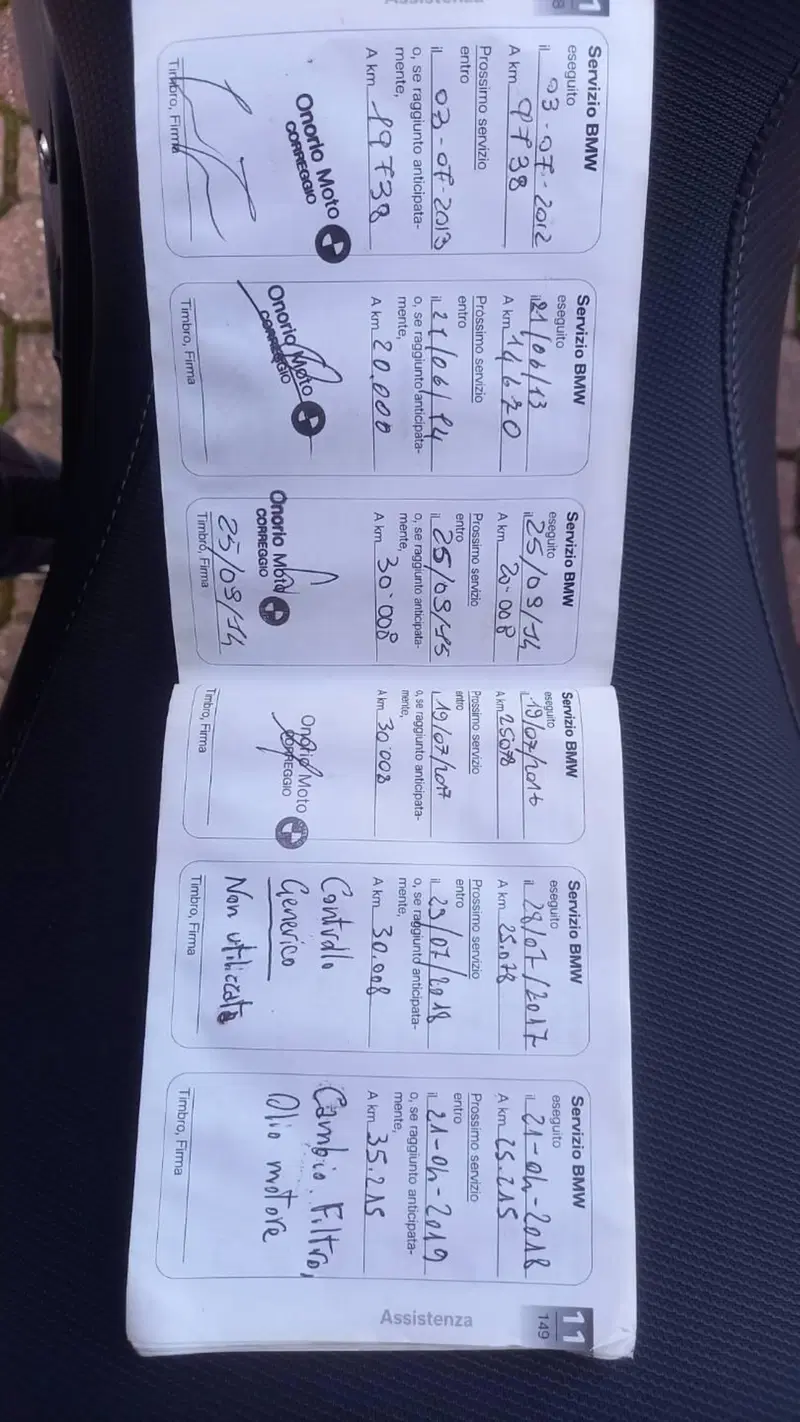 Assistenza
1
8
Servizio BMW
eseguito
il 03-07-2012
A km 9738
Prossimo servizio
entro
il 03-07-2013
o, se raggiunto anticipata-
mente,
A km 19738
Onorio Moto
CORREGGIO
Timbro, Firma
Servizio BMW
eseguito
il 21/06/13
A km 14670
Prossimo servizio
entro
il 21/06/14
o, se raggiunto anticipata-
mente,
A km 20.000
Onorio Moto
CORREGGIO
Timbro, Firma
Servizio BMW
eseguito
il 25/09/14
A km 20.008
Prossimo servizio
entro
il 25/09/15
o, se raggiunto anticipata-
mente,
A km 30.008
Onorio Moto
CORREGGIO
25/09/14
Timbro, Firma
Servizio BMW
eseguito
il 19/07/2016
A km 25078
Prossimo servizio
entro
il 19/07/2017
o, se raggiunto anticipata-
mente,
A km 30.008
Onorio Moto
CORREGGIO
Timbro, Firma
Servizio BMW
eseguito
il 28/07/2017
A km 25.078
Prossimo servizio
entro
il 29/07/2018
o, se raggiunto anticipata-
mente,
A km 30.008
Controllo
Generico
Non utilizzata
Timbro, Firma
Servizio BMW
eseguito
il 21-04-2018
A km 25.215
Prossimo servizio
entro
il 21-04-2019
o, se raggiunto anticipata-
mente,
A km 35.215
Cambio Filtro,
Olio motore
Timbro, Firma
Assistenza
11
149